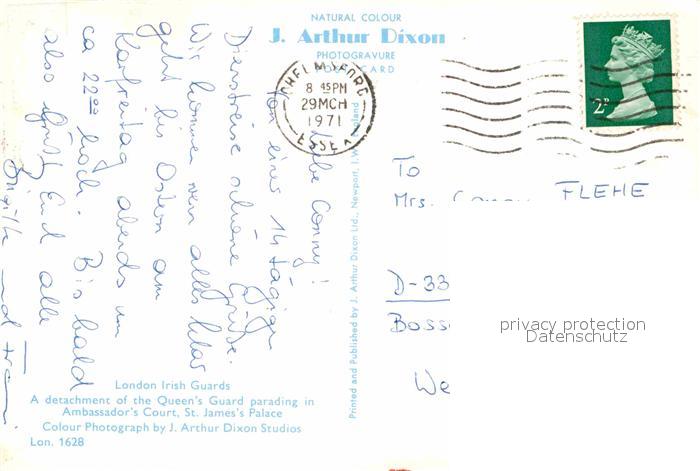 NATURAL COLOUR
J. Arthur Dixon
PHOTOGRAVURE
POST CARD
CHELMSFORD
8 45PM
29MCH
1971
ESSEX
2P
Liebe Conny!
Von einer 14 tägigen
Dienstreise schöne Grüße.
Wir kommen wenn alles klar
geht bis Ostern am
Karfreitag abends um
ca 2200 hoch. Bis bald
also grüßt Euch alle
To
Mrs.
FLEHE
D-33
Boss
We
privacy protection
Datenschutz
Printed and Published by J. Arthur Dixon Ltd., Newport, I.W., England
London Irish Guards
A detachment of the Queen's Guard parading in
Ambassador's Court, St. James's Palace
Colour Photograph by J. Arthur Dixon Studios
Lon. 1628